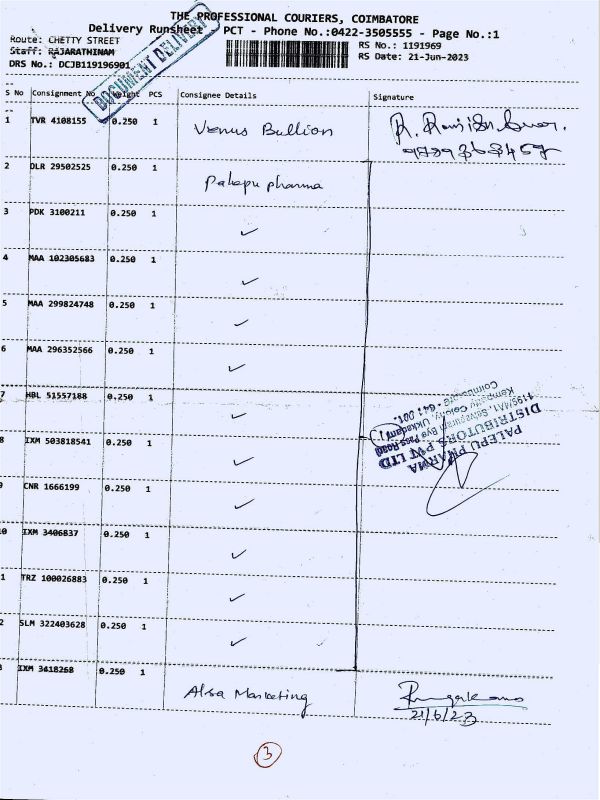 THE PROFESSIONAL COURIERS, COIMBATORE
Delivery Runsheet PCT - Phone No.:0422-3505555 - Page No.:1
Route: CHETTY STREET
RS No.: 1191969
Staff: RAJARATHINAM
RS Date: 21-Jun-2023
DRS No.: DCJB119196901
DOCUMENT DELIVERY
S No Consignment No Weight PCS Consignee Details Signature
1 TVR 4108155 0.250 1 Venus Bullion
2 DLR 29502525 0.250 1 Palepu pharma
3 PDK 3100211 0.250 1 ✓
4 MAA 102305683 0.250 1 ✓
5 MAA 299824748 0.250 1 ✓
6 MAA 296352566 0.250 1 ✓
7 HBL 51557188 0.250 1 ✓
8 IXM 503818541 0.250 1 ✓
9 CNR 1666199 0.250 1 ✓
0 IXM 3406837 0.250 1 ✓
1 TRZ 100026883 0.250 1 ✓
2 SLM 322403628 0.250 1 ✓
3 IXM 3418268 0.250 1 Alsa Marketing
21/6/23
PALEPU PHARMA
DISTRIBUTORS PVT LTD
Bye Pass Road
Colony, Ukkadam
Coimbatore - 641 001.
3